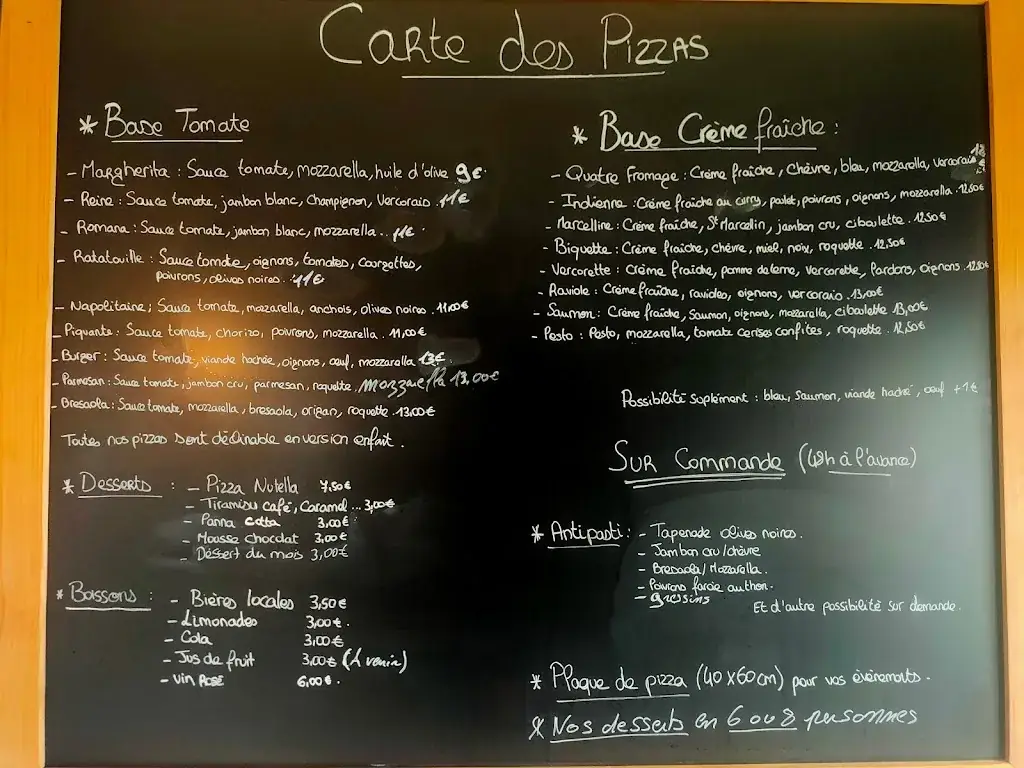 Carte des Pizzas
* Base Tomate
- Margherita : Sauce tomate, mozzarella, huile d'olive 9€.
- Reine : Sauce tomate, jambon blanc, Champignon, Vercorais. 11€
- Romana : Sauce tomate, jambon blanc, mozzarella .. 11€.
- Ratatouille : Sauce tomate, oignons, tomates, courgettes,
poivrons, olives noires. 11€
- Napolitaine ; Sauce tomate, mozarella, anchois, olives noires. 11,00€
- Piquante : Sauce tomate, chorizo, poivrons, mozzarella. 11,00€
- Burger : Sauce tomate, viande hachée, oignons, œuf, mozzarella 13€.
- Parmesan : Sauce tomate, jambon cru, parmesan, roquette, mozzarella 13,00€
- Bresaola : Sauce tomate, mozzarella, bresaola, origan, roquette. 13,00€
Toutes nos pizzas sont déclinable en version enfant.
* Desserts : - Pizza Nutella 7,50€
- Tiramisu café, Caramel... 3,00€
- Panna cotta 3,00€
- Mousse chocolat 3,00€
- Déssert du mois 3,00€
* Boissons : - Bières locales 3,50€
- Limonades 3,00€.
- Cola 3,00€
- Jus de fruit 3,00€ (A venir)
- Vin Rosé 6,00€.
* Base Crème fraîche :
- Quatre Fromage : Crème fraîche, chèvre, bleu, mozzarella, vercorais €
- Indienne : Crème fraîche au curry, poulet, poivrons, oignons, mozzarella. 12,50€
- Marcelline : Crème fraîche, St Marcellin, jambon cru, ciboulette. 12,50€
- Biquette : Crème fraîche, chèvre, miel, noix, roquette. 12,50€
- Vercorette : Crème fraîche, pomme de terre, vercorette, lardons, oignons. 12,50€
- Raviole : Crème fraîche, ravioles, oignons, vercorais. 13,00€
- Saumon : Crème fraîche, Saumon, oignons, mozzarella, ciboulette 13,00€
- Pesto : Pesto, mozzarella, tomate cerises confites, roquette. 12,50€
Possibilité suplément : bleu, saumon, viande haché, œuf +1€
Sur Commande (48h à l'avance)
* Antipasti : - Tapenade olives noires.
- Jambon cru/chèvre
- Bresaola/Mozzarella.
- Poivrons farcie au thon.
- gressins
Et d'autre possibilité sur demande.
* Plaque de pizza (40x60cm) pour vos évènements.
* Nos desserts en 6 ou 8 personnes